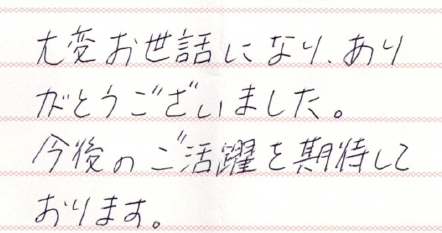 大変お世話になり、あり
がとうございました。
今後のご活躍を期待して
おります。